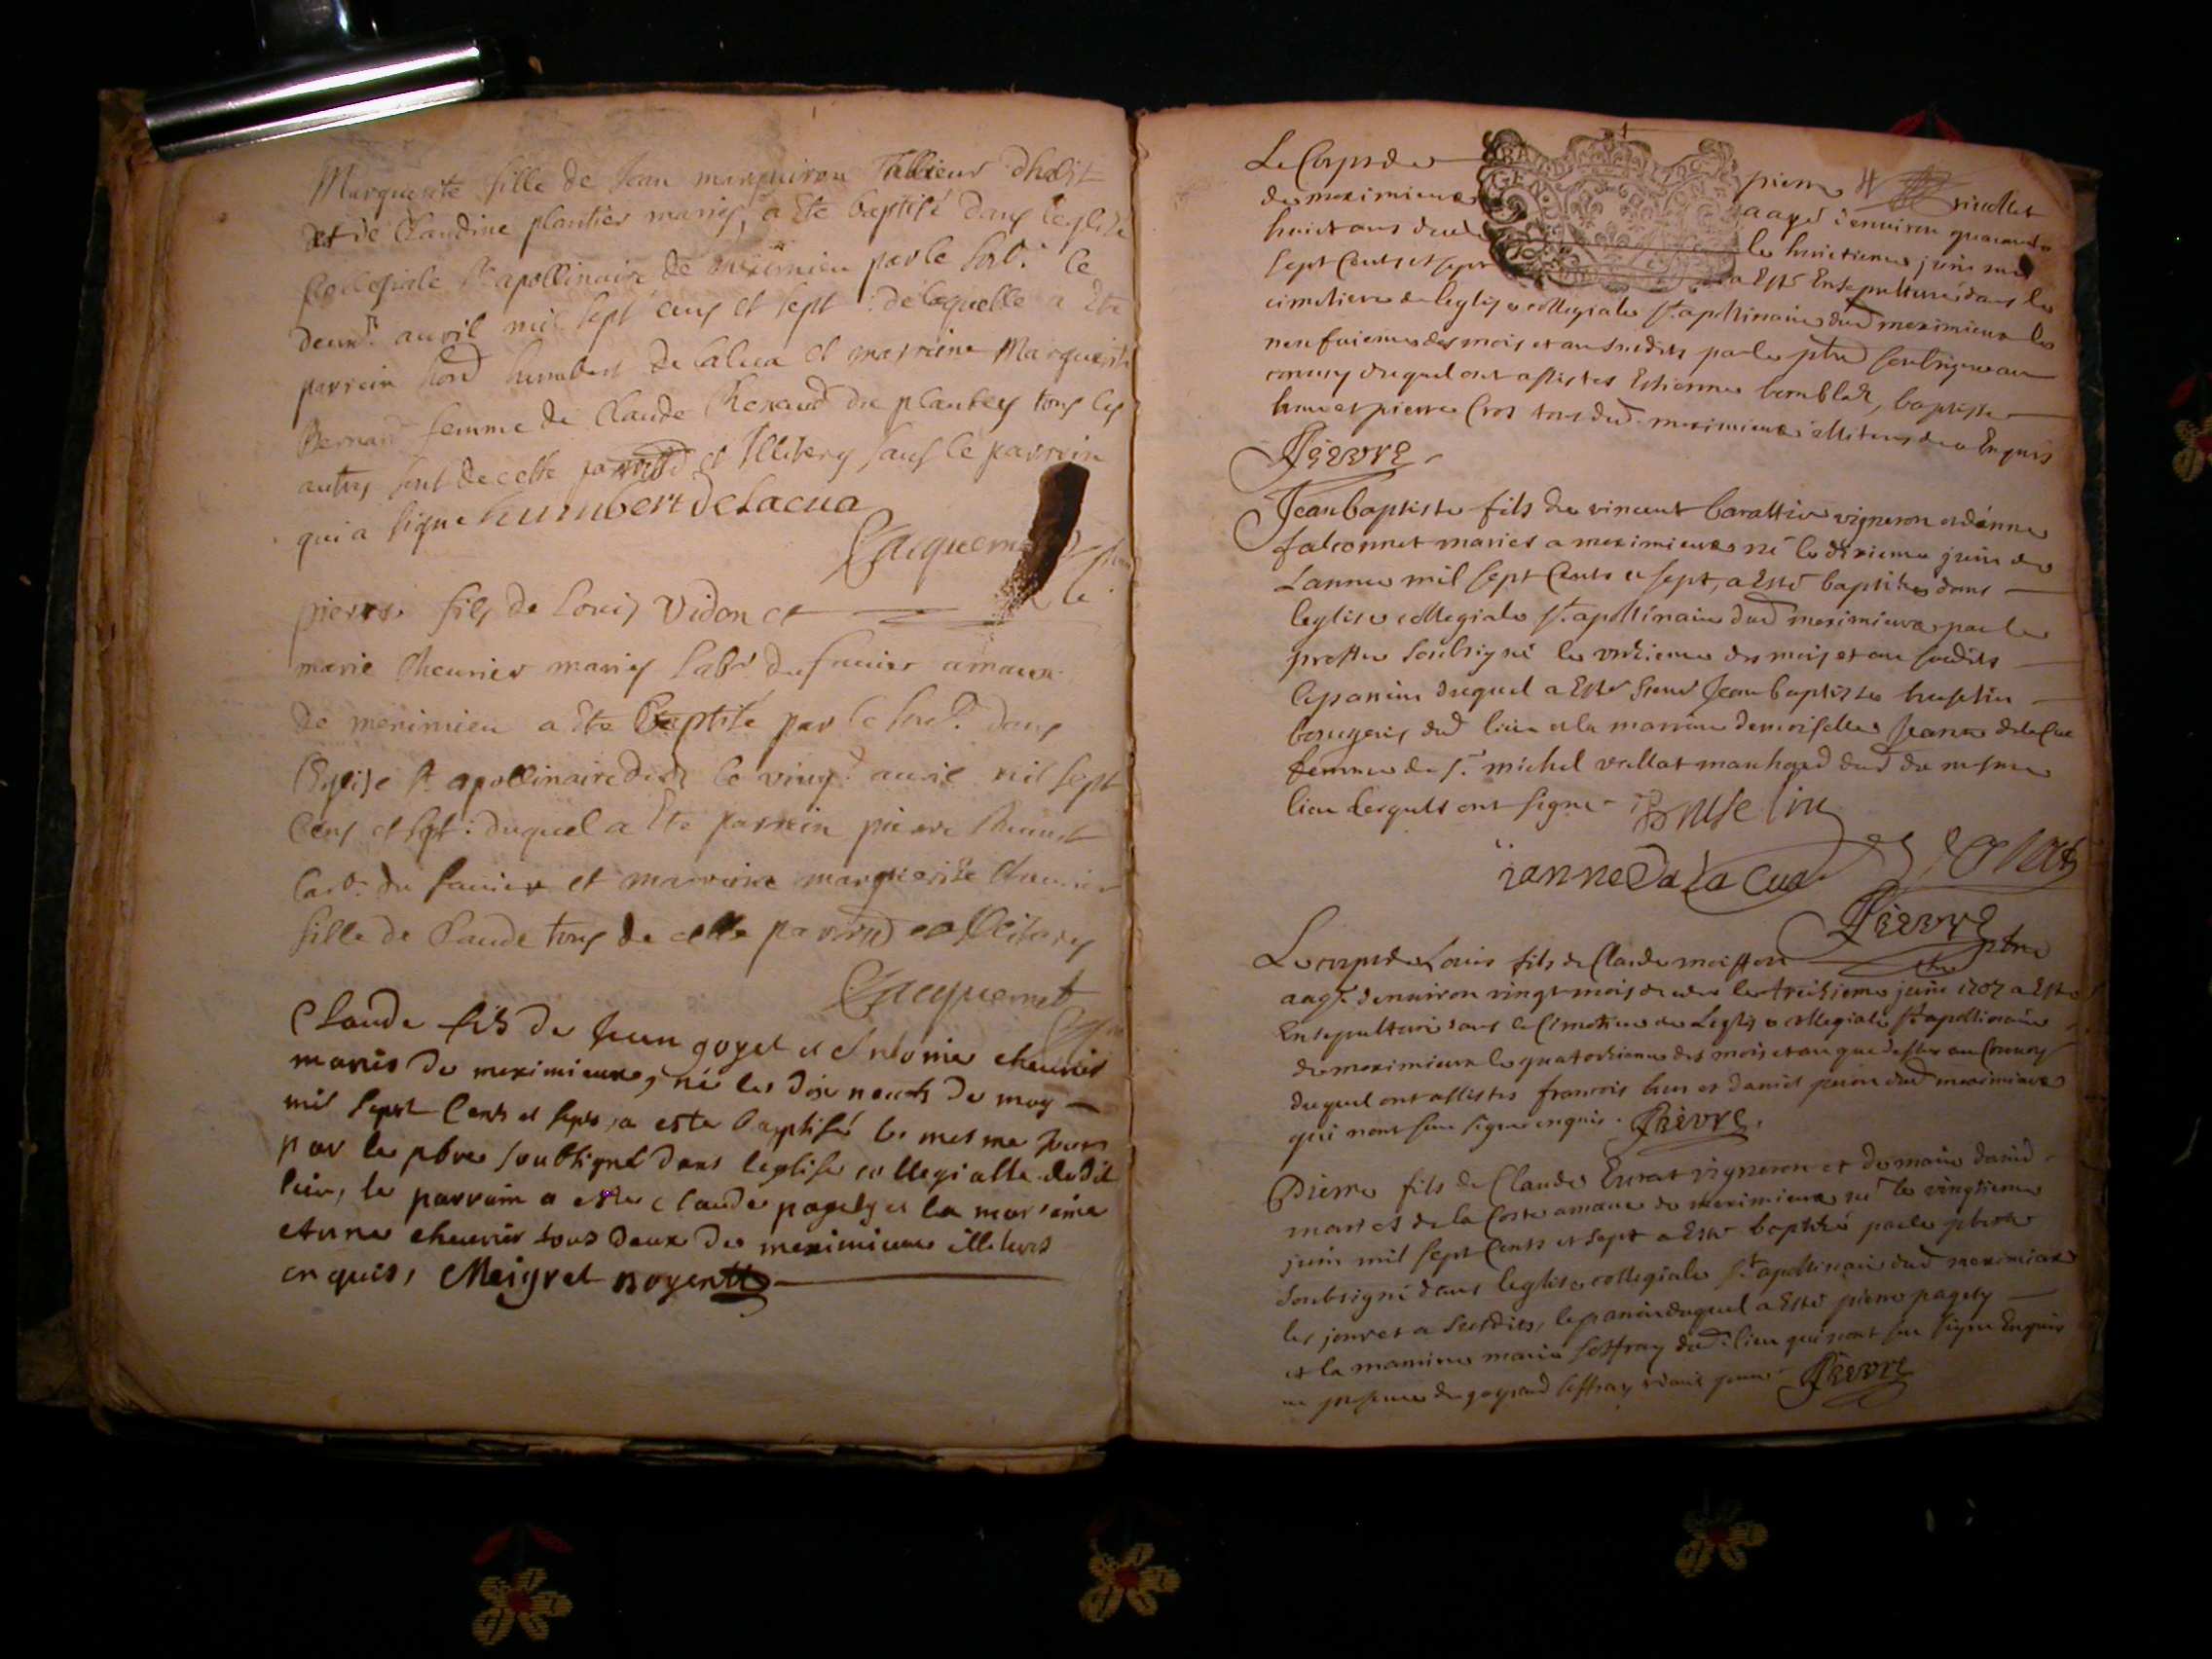 Marguerite fille de Jean marquiron Tallieur d'habit
et de Claudine plantier mariés, a Ete baptisé dans leglise
Collegiale St apollinaire de meximieu par le sousd. le
deuxe. auvril mil sept cens et sept : de laquelle a Ete
parrein hond humbert de lacua et marreine Marguerite
Bernard femme de Claude Renaud de plantey tous les
autres sont de cette parroisse et Illiterez sauf le parrein
qui a signe humbert de Lacua
Jacquemet
pierre fils de Louis Vidon et
marie Cheurier mariez labr. du fauier amaux
de meximieu a Ete Baptisé par le sousd. dans
l'Eglise St apollinaire dud. le vingt. auril mil sept
Cens et sept : duquel a Ete parrein pierre
labr. du fauier et marreine marguerite Cheurier
fille de Claude tous de cette parroisse et Illiterez
Jacquemet
Claude fils de Jean goyet et Antonia cheurier
mariés de meximieux, né les dix neuf de may
mil sept Cents et sept, a este baptisé le mesme jours
par le pbre soubsigné dans leglise collegialle dudit
lieu, le parrain a este claude pagety et la marreine
Anna cheurier tous deux de meximieux illiterés
enquis, Meigret
Le Corps de pierre vuillet
de meximieux aagé d'enuiron quarante
huict ans decedé le huictieme juin mil
sept Cents et sept a Esté Ensepulturé dans le
cimetiere de leglise collegiale St apollinaire dud meximieux le
neufuieme des mois et an susdits par le ptre soubsigné au
conuoy duquel ont assistes Estienne bomblat, baptiste
brun et pierre Cros tous dud. meximieux illiteres de ce Enquis
Fievre
Jean baptiste fils de vincent barattier vigneron et danne
falconnet mariés a meximieux né le dixieme juin de
Lannee mil sept Cents et sept, a Esté baptisé dans
leglise collegiale St apollinaire dud meximieux par le
prestre soubsigné le unzieme des mois et an susdits
le parrin duquel a Esté Sieur Jean baptiste bruselin
bourgeois dud lieu et la marrine demoiselle Jeanne de la Cua
femme de Sr. michel vollat marchand dud du mesme
lieu lesquels ont signé Bruselin
janne Da La Cua Volat
Fievre ptre
Le corps de Louis fils de Claude
aagé denuiron vingt mois decedé le treizieme juin 1707 a Esté
Ensepulturé dans le Cimetiere de Leglise collegiale St apollinaire
de meximieux le quatorzieme des mois et an que dessus au Conuoy
duquel ont assistes francois brun et daniel dud meximieux
qui nont sceu signer enquis. Fievre.
Pierre fils de Claude Eurat vigneron et de marie dauid
mariés de la Coste amaux de meximieux né le vingtieme
juin mil sept Cents et sept a Esté baptisé par le pbstre
Soubsigné dans leglise collegiale St apollinaire dud meximieux
les jour et an susdits, le parrin duquel a Esté pierre pagety
et la marrine marie soffray dud. lieu qui nont sceu signer Enquis
en presence de gaspard soffray Fievre